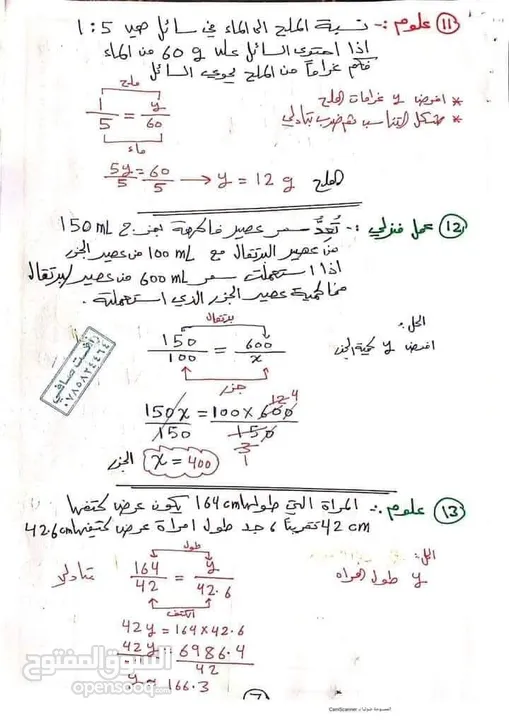 (11) علوم :- نسبة الملح الى الماء في سائل هي 5 : 1
اذا احتوى السائل على 60 g من الماء
فكم غراماً من الملح يحوي السائل
ملح
* افرض y غرامات الملح
* نشكل التناسب ثم ضرب تبادلي
1/5 = y/60
ماء
5y/5 = 60/5 → y = 12 g الملح
(12) عمل منزلي :- تُعِدُّ سمر عصير فاكهة بمزج 150 mL
من عصير البرتقال مع 100 mL من عصير الجزر
اذا استعملت سمر 600 mL من عصير البرتقال
فما كمية عصير الجزر الذي استعملته .
برتقال
الحل :
افرض y كمية الجزر
150/100 = 600/x
جزر
رافت صافي
٠٧٨٥٨٢٤٤٦٤
12 4
150x/150 = 100×600/150
3
1
x = 400 الجزر
(13) علوم :- المراة التي طولها 164 cm يكون عرض كتفيها
42 cm تقريبًا ، جد طول امراة عرض كتفيها 42.6 cm
طول
الحل :
y طول المراه
164/42 = y/42.6
تبادلي
الكتف
42y = 164×42.6
42y = 6986.4
42
y = 166.3
السوق المفتوح
opensooq.com
CamScanner